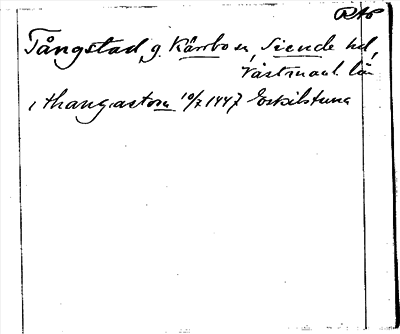 RAP
Tångstad, g. Kärrbo sn, Siende hd,
Västmanl. län
i thangastom 10/7 1447 Eskilstuna